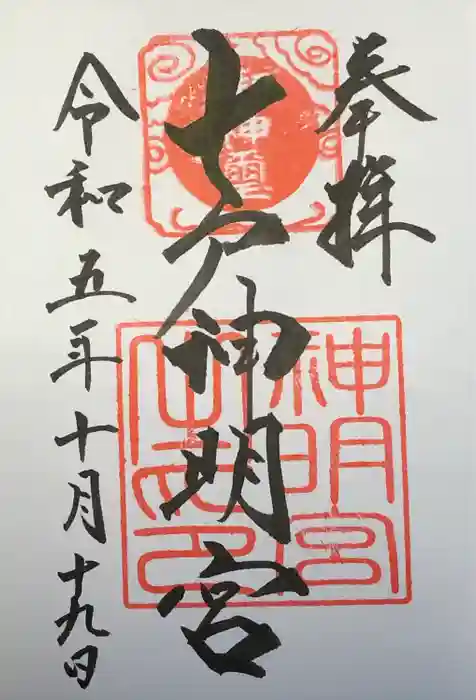 奉拝
七戸神明宮
令和五年十月十九日
神明宮